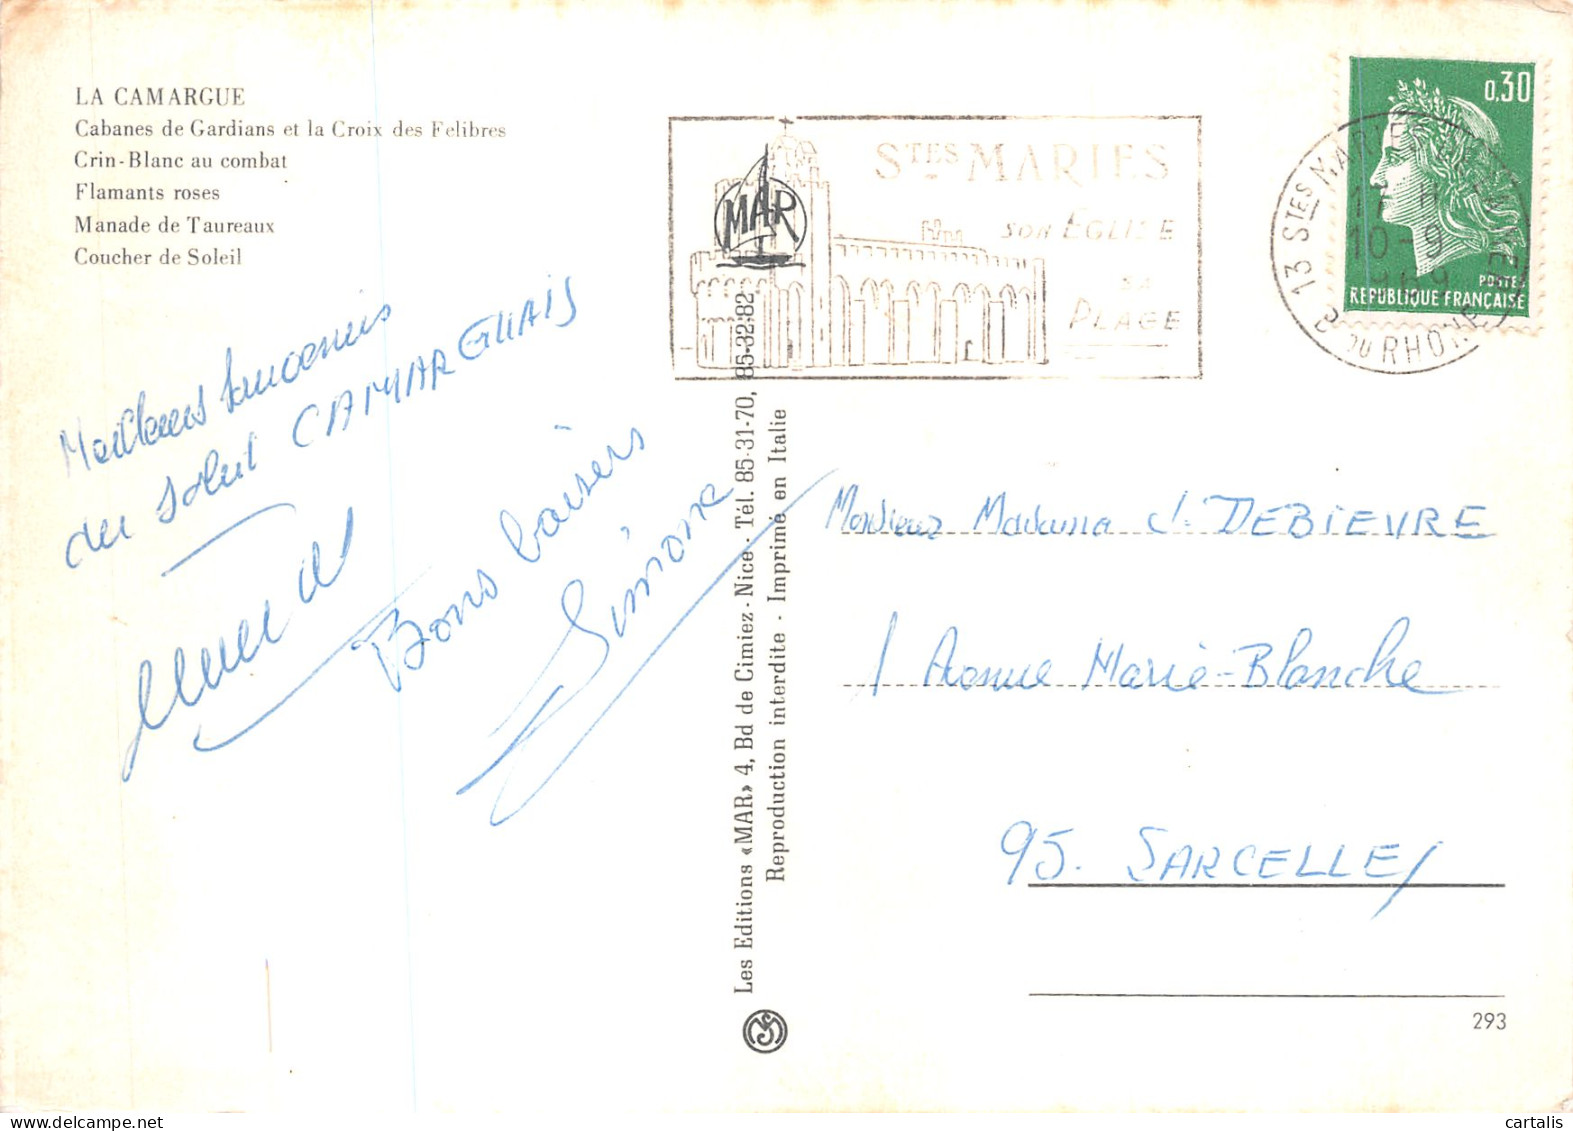 LA CAMARGUE
Cabanes de Gardians et la Croix des Felibres
Crin-Blanc au combat
Flamants roses
Manade de Taureaux
Coucher de Soleil
Meilleurs Souvenirs
du soleil CAMARGUAIS
Bons baisers
Simone
MAR
STES MARIES
SON EGLISE
SA
PLAGE
13 STES MARIES
10-9
1969
B. DU RHONE
0,30
POSTES
REPUBLIQUE FRANÇAISE
Les Editions «MAR» 4, Bd de Cimiez - Nice - Tél. 85-31-70, 85-32-82
Reproduction interdite - Imprimé en Italie
Monsieur Madame J. DEBIEVRE
1 Avenue Marie-Blanche
95. SARCELLES
293
cartalis